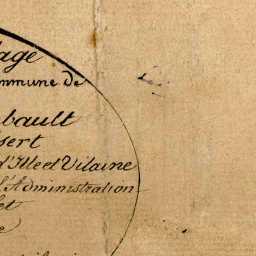 lage
ommune de
bault
sert
d'Ille et Vilaine
l'Administration
et
e